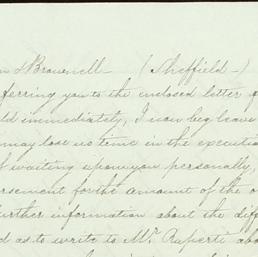 & Brownell — (Sheffield —)
ferring you to the enclosed letter
immediately, I now beg leave
may lose no time in the executi
f waiting upon you personally,
rsement for the amount of the o
urther information about the diff
d as to write to Mr. Ruperti abo